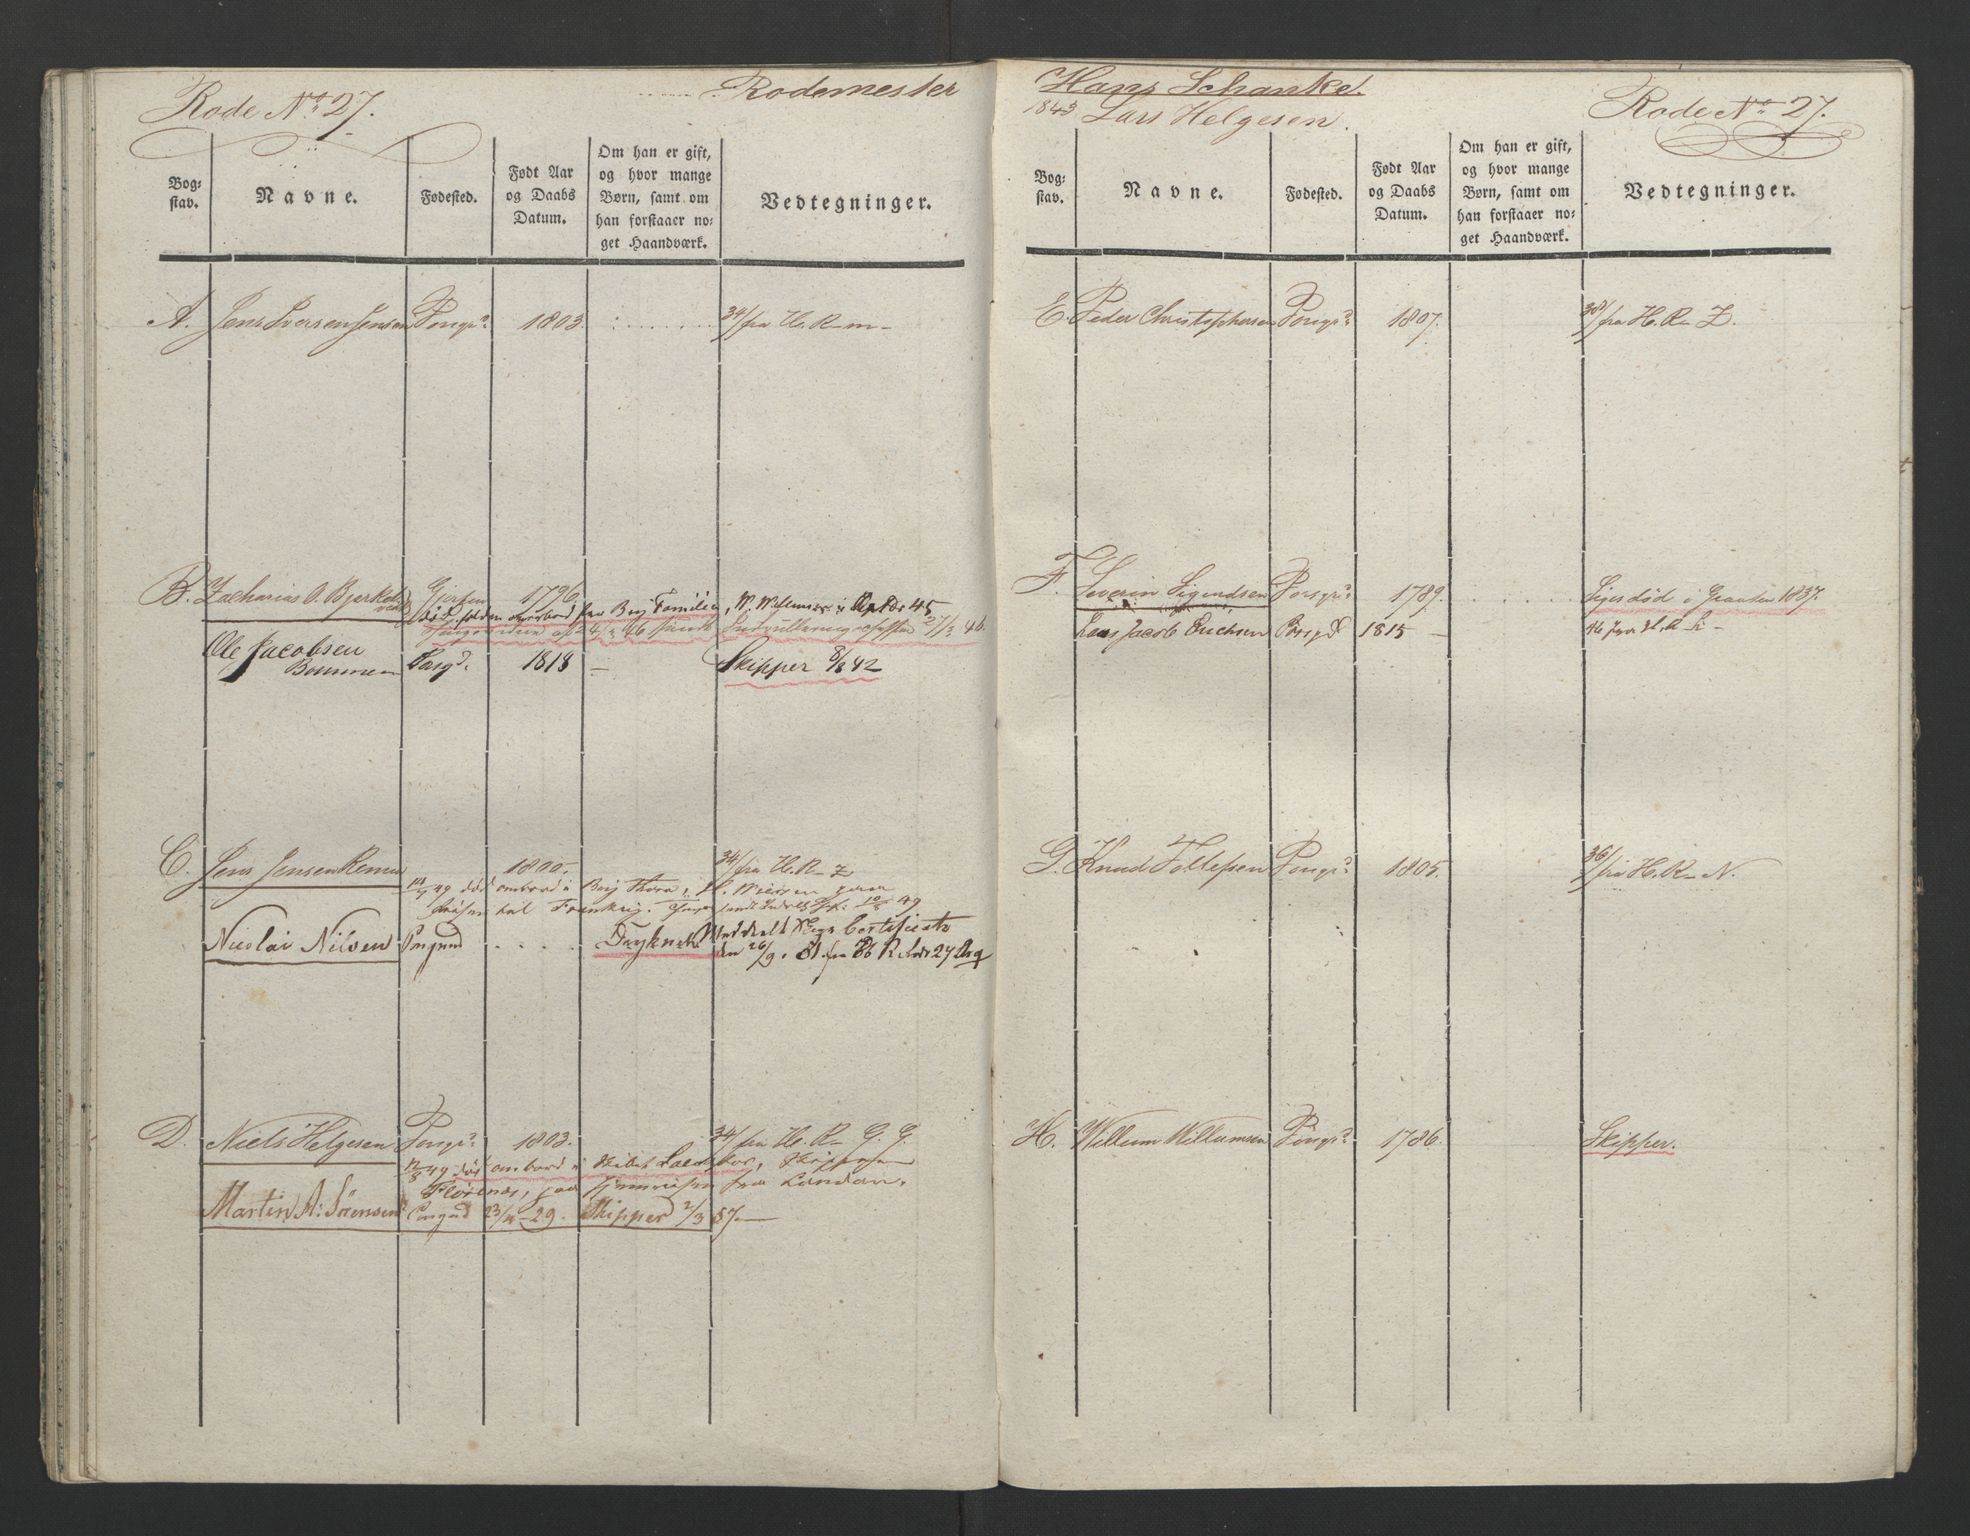 Rode No 27.
Rodemester
Bog-
stav.
Navne.
Fødested.
Født Aar
og Daabs
Datum.
Om han er gift,
og hvor mange
Børn, samt om
han forstaaer no-
get Haandværk.
Vedtegninger.
A. Jens Iversen Jensen Porsgr. 1803. 34/fra H. R. m
B. Zacharias O. Bjerke 1796.
død, falden overbord fra Brig Familien, 45
27/3 46.
Ole Jacobsen
Porsgd. 1818 — Skipper 8/8 42
C. Jens Jensen 1800. 34/fra H. R. Z
død ombord i Brig Thora,
10/5 49
Nicolai Nilsen Porsgrund Meddeelt Certificate
den 26/9.
D. Niels Helgesen Porsgr. 1803. 34/fra H. R. G. G.
død ombord i Skibet
paa Hjemreisen fra London.
Martin A: Sørensen Porsgrd 23/4 - 29. Skipper 2/3 57 —
Hans Schanke.
1843 Lars Helgesen.
Rode No 27.
Bog-
stav.
Navne.
Fødested.
Født Aar
og Daabs
Datum.
Om han er gift,
og hvor mange
Børn, samt om
han forstaaer no-
get Haandværk.
Vedtegninger.
E. Peder Christophersen Porsgr. 1807. 38/fra H. R. Z.
F. Severin Sigundsen Porsgr. 1789. Siges død i 1837.
Jacob Erichsen Porsgrd 1815 — 46 fra H. R. h —
G. Knud Tollefsen Porsgr. 1805. 36/fra H. R. N.
H. Willum Willumsen Porsgr. 1786. Skipper.